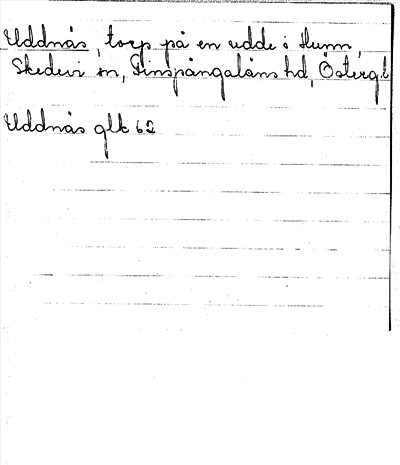 Uddnäs, torp på en udde i Hunn,
Skedevi sn, Finspångaläns hd, Östergl
Uddnäs glb 62